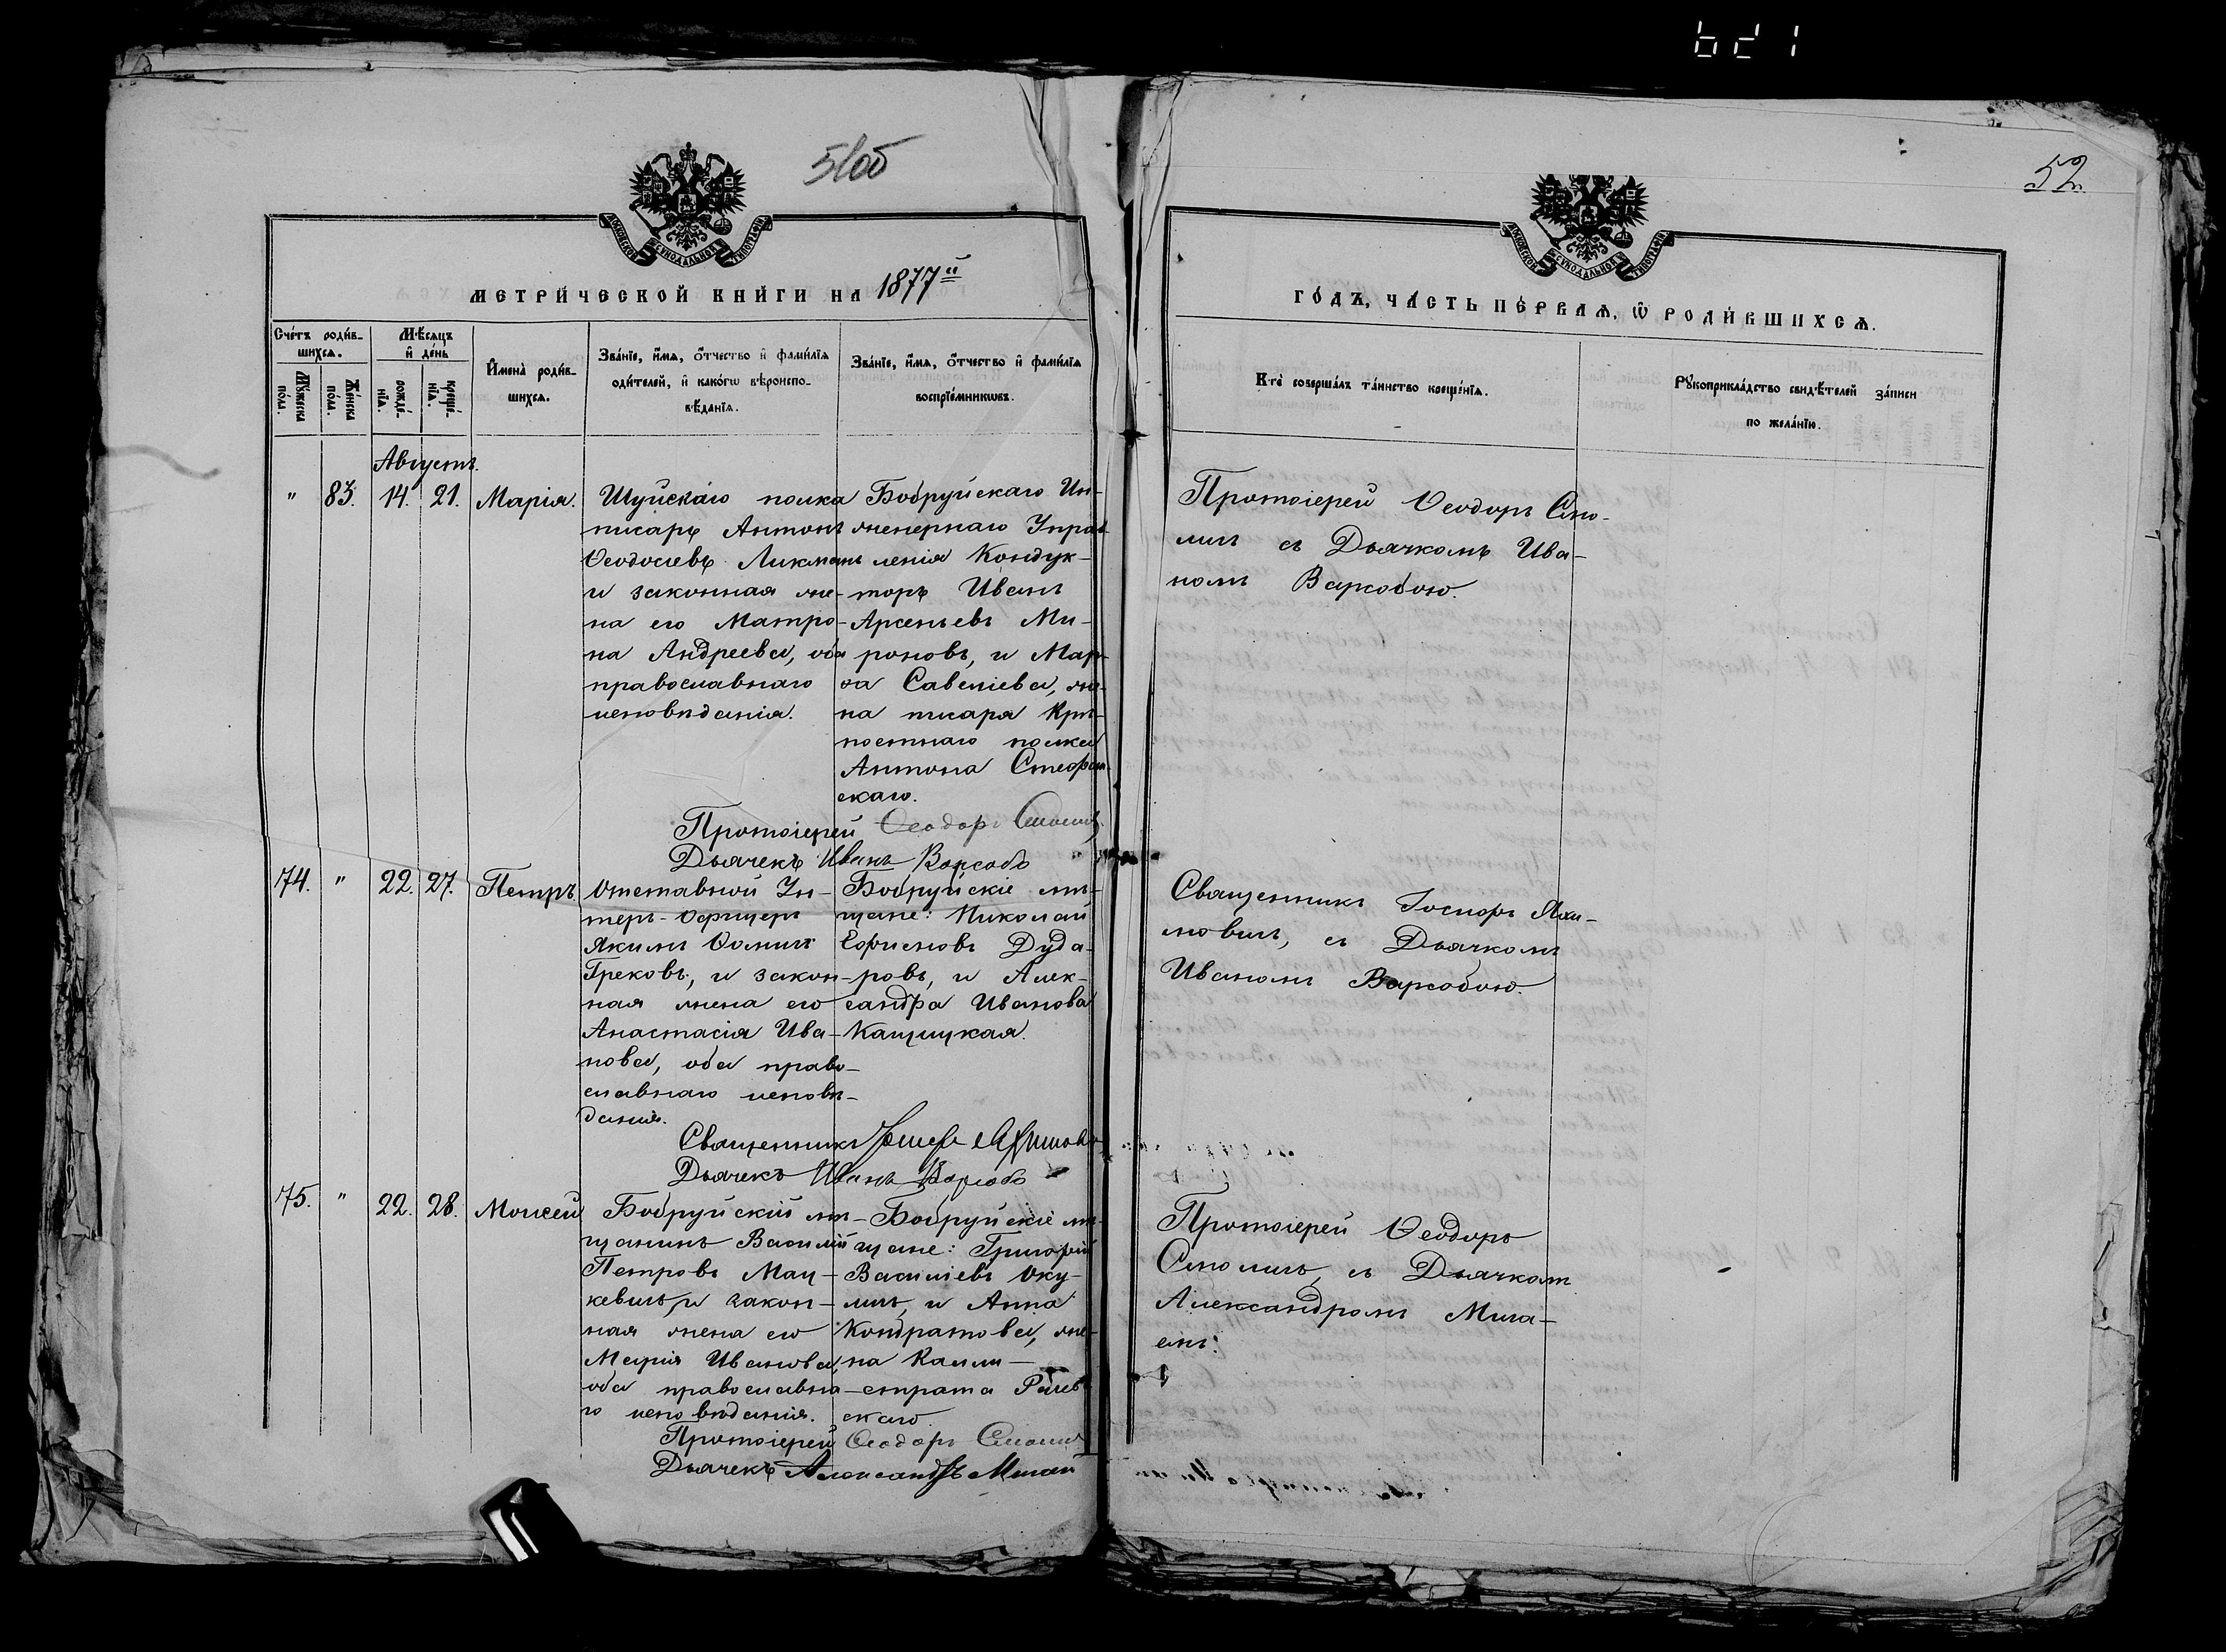 52
МЕТРИЧЕСКОЙ КНИГИ НА 1877й
ГОДЪ, ЧАСТЬ ПЕРВАѦ, Ѡ РОДИВШИХСѦ.
Счетъ родив-
шихсѧ.
Мꙋжеска
пола.
Женска
пола.
Мѣсѧцъ
и день
рожде-
нїѧ.
креще-
нїѧ.
Имена родив-
шихсѧ.
Званїе, имѧ, отчество и фамилїѧ
одителей, и какогѡ вѣроиспо-
вѣданїѧ.
Званїе, имѧ, отчество и фамилїѧ
воспрїемникѡвъ.
Кто совершалъ таинство крещенїѧ.
Рꙋкоприкладство свидѣтелей записи
по желанїю.
Августъ.
" 83. 14. 21. Марія.
Шуйскаго полка
писарь Антонъ
Ѳеодосіевъ Ликманъ
и законная же-
на его Матро-
на Андреева, оба
православнаго
исповѣданія.
Бобруйскаго Ин-
женернаго Управ
ленія Кондук-
торъ Иванъ
Арсеньевъ Ми-
роновъ, и Мар-
ѳа Савеліева, же-
на писаря Крѣ-
постнаго полка
Антона
скаго.
Протоіерей Ѳеодоръ Смо-
личъ съ Дьячкомъ Ива-
номъ Варсобою.
Протоіерей Ѳеодоръ Смоличъ
Дьячекъ Иванъ Варсоба
74. " 22. 27. Петръ.
Отставной Ун-
теръ-Офицеръ
Якимъ Ѳоминъ
Грековъ, и закон-
ная жена его
Анастасія Ива-
нова, оба право-
славнаго исповѣ-
данія.
Бобруйскіе мѣ-
щане: Николай
Ефимовъ Дуда-
ровъ, и Алек-
сандра Иванова
Кащицкая.
Священникъ Іосифъ Яхи-
мовичъ, съ Дьячкомъ
Иваномъ Варсобою.
Священникъ Іосифъ Яхимовичъ
Дьячекъ Иванъ Варсоба
75. " 22. 28. Моисей
Бобруйскій мѣ-
щанинъ Василій
Петровъ Мац-
кевичъ, и закон-
ная жена его
Марія Иванова,
оба православна-
го исповѣданія.
Бобруйскіе мѣ-
щане: Григорій
Васильевъ Оку-
личъ, и Анна
Кондратова, же-
на Калли-
страта
скаго.
Протоіерей Ѳеодоръ
Смоличъ, съ Дьячкомъ
Александромъ Мига-
емъ.
Протоіерей Ѳеодоръ Смоличъ
Дьячекъ Александръ Мигай